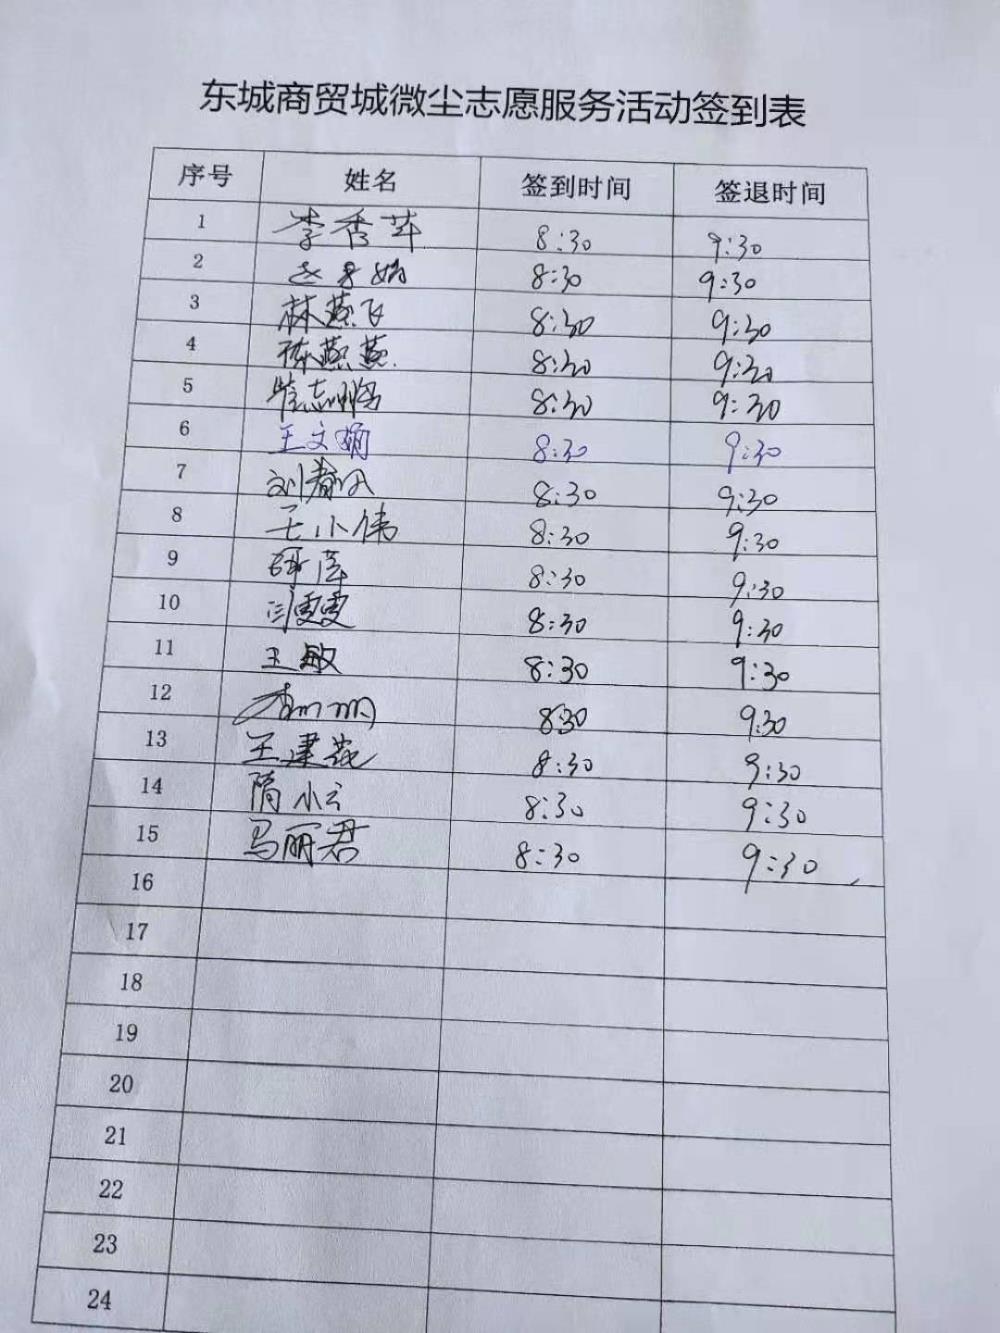 东城商贸城微尘志愿服务活动签到表
序号 姓名 签到时间 签退时间
1 李秀苹 8:30 9:30
2 8:30 9:30
3 林燕飞 8:30 9:30
4 陈燕燕 8:30 9:30
5 8:30 9:30
6 王文娟 8:30 9:30
7 刘春 8:30 9:30
8 王小伟 8:30 9:30
9 8:30 9:30
10 闫雯雯 8:30 9:30
11 王敏 8:30 9:30
12 李丽丽 8:30 9:30
13 王建花 8:30 9:30
14 隋小云 8:30 9:30
15 马丽君 8:30 9:30
16
17
18
19
20
21
22
23
24